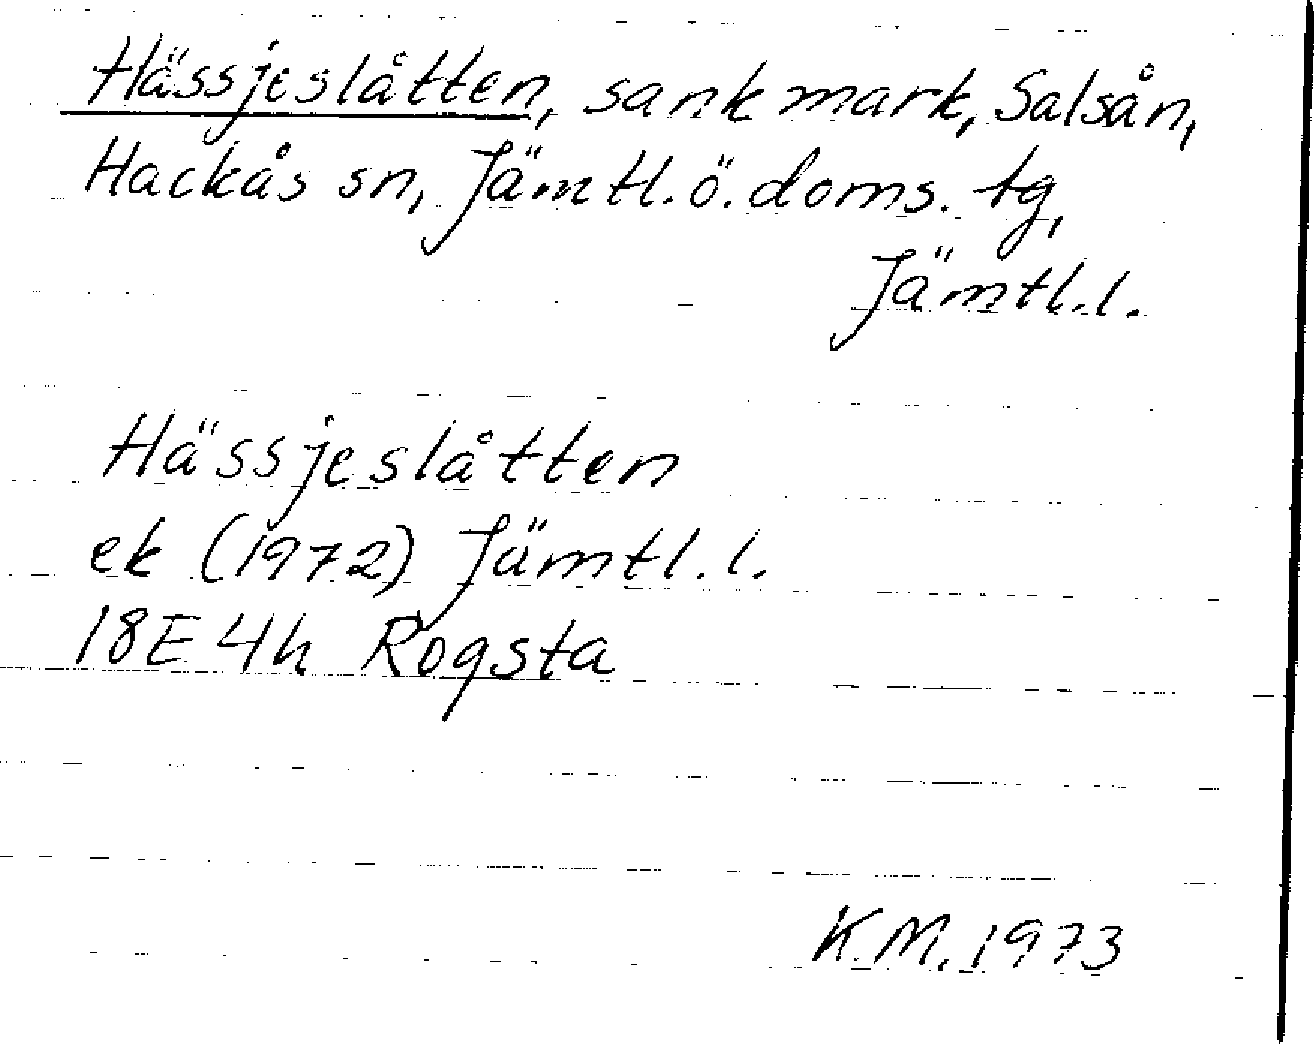 Hässjeslåtten, sank mark, Salsån,
Hackås sn, Jämtl.ö.doms. tg,
Jämtl.l.
Hässjeslåtten
ek (1972) Jämtl.l.
18E 4h Rogsta
K.M.1973